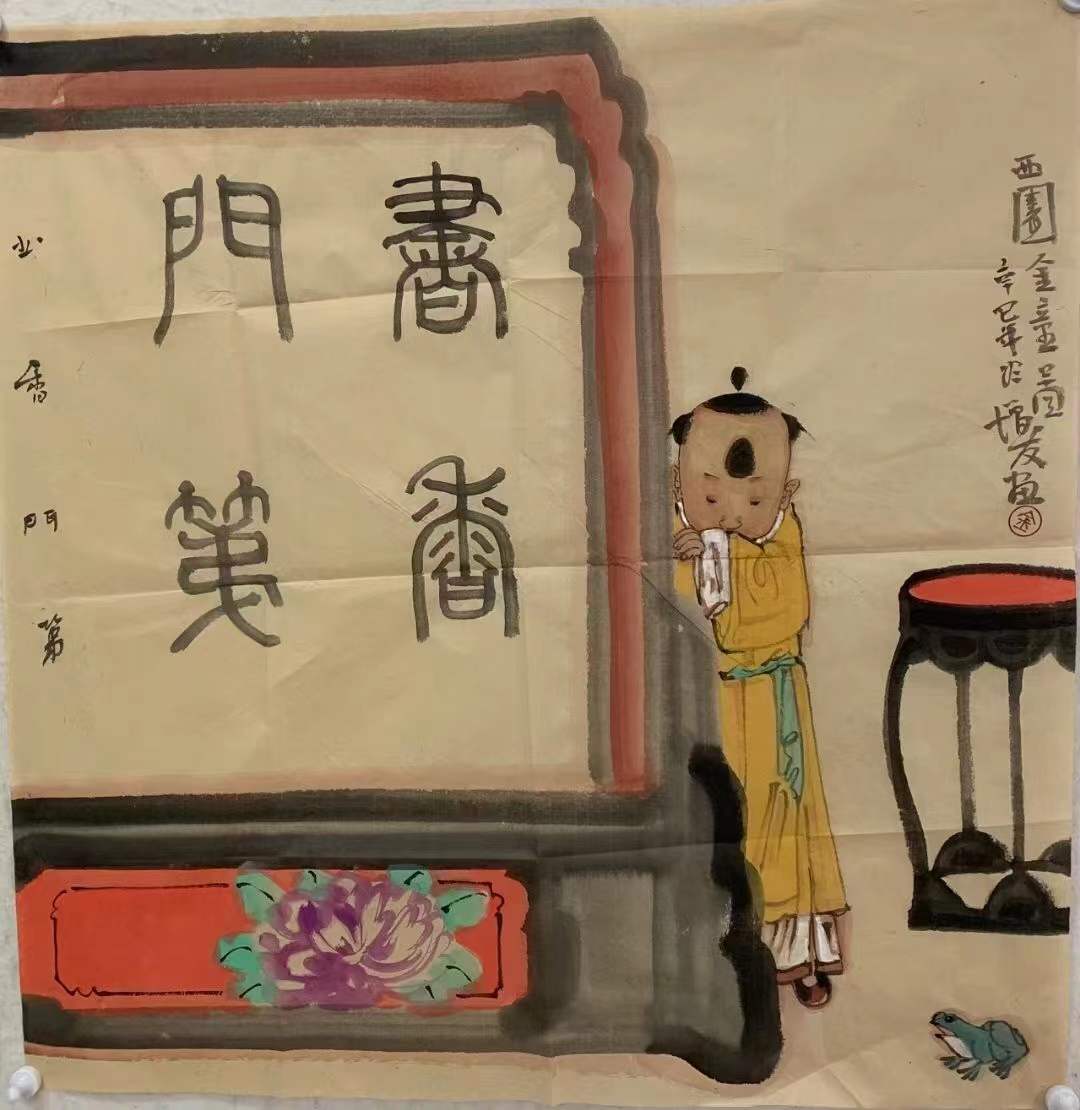 西園金童圖
辛巳年增友画
書香
門第
书香門第